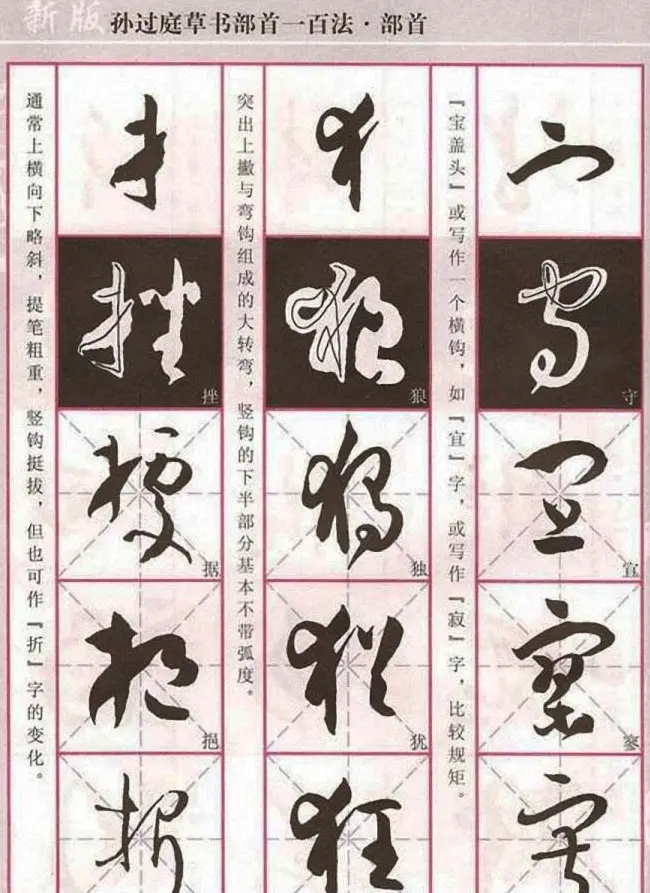 新版孙过庭草书部首一百法·部首
宀
守
宜
『宝盖头』或写作一个横钩，如『宜』字，或写作『寂』字，比较规矩。
犭
狼
独
犹
狂
突出上撇与弯钩组成的大转弯，竖钩的下半部分基本不带弧度。
扌
挫
据
挹
折
通常上横向下略斜，提笔粗重，竖钩挺拔，但也可作『折』字的变化。